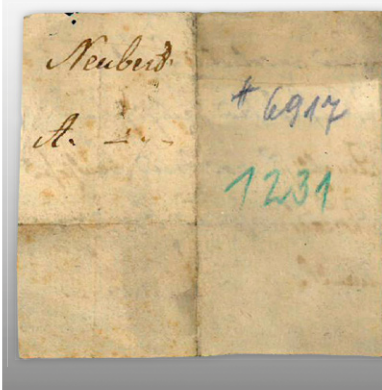 Neubert
A.
# 6917
1231